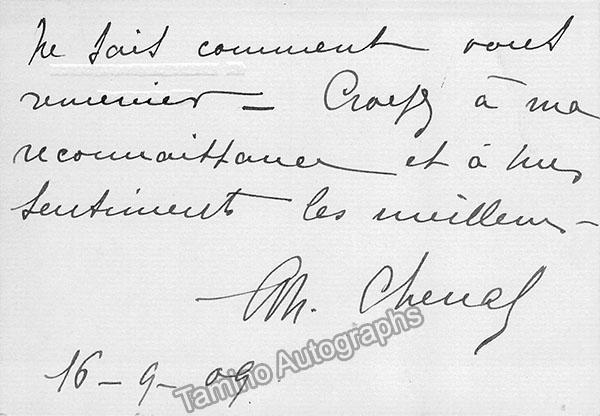 ne sais comment vous
remercier = Croyez à ma
reconnaissance et à mes
sentiments les meilleurs -
Mh. Chenal
16 - 9 - 09
Tamino Autographs